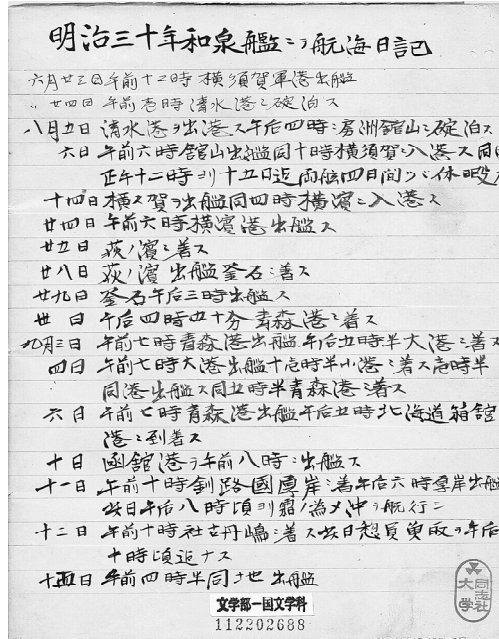 明治三十年和泉艦ニテ航海日記
六月廿三日午前十二時横須賀軍港出艦
〃廿四日午前壱時清水港ニ碇泊ス
八月五日清水港ヲ出港ス午后四時ニ房洲舘山ニ碇泊ス
六日午前六時舘山出艦同十時横須賀ヘ入港ス同日
正午十二時ヨリ十五日迄両舷四日間ツヽ休暇
十四日横ス賀ヲ出艦同四時横濱ニ入港ス
廿四日午前六時横濱港出艦ス
廿五日荻ノ濱ニ着ス
廿八日荻ノ濱出艦釜石ニ着ス
廿九日釜石午后三時出艦ス
丗日午后四時五十分青森港ニ着ス
九月三日午前七時青森港出艦午后五時半大港ニ着ス
四日午前七時大港出艦十壱時半小港ニ着ス壱時半
同港出艦ス同五時半青森港ニ着ス
六日午前七時青森港出艦午后五時北海道箱舘
港ニ到着ス
十日函舘港ヲ午前八時ニ出艦ス
十一日午前十時釧路國厚岸ニ着午后六時厚岸出艦
此日午后八時頃ヨリ霧ノ為メ沖ヲ航行ニ
十二日午前十時社古丹嶋ニ着ス此日想員東取ヲ午后
十時頃迄ナス
十四日午前四時半同地出艦
文学部-国文学科
112202688
同志社
大学